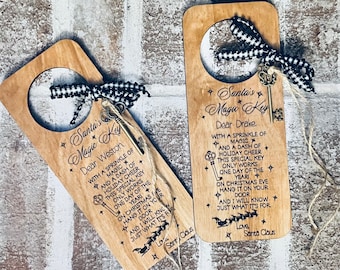 Santa's
Magic Key
Dear Weston
WITH A SPRINKLE OF
MAGIC
AND A DASH OF
HOLIDAY CHEER
THIS SPECIAL KEY
ONLY WORKS
ONE DAY OF THE
YEAR
ON CHRISTMAS EVE
HANG IT ON YOUR
DOOR
AND I WILL KNOW
JUST WHAT IT'S FOR
Love,
Santa Claus
Santa's
Magic Key
Dear Drake
WITH A SPRINKLE OF
MAGIC
AND A DASH OF
HOLIDAY CHEER
THIS SPECIAL KEY
ONLY WORKS
ONE DAY OF THE
YEAR
ON CHRISTMAS EVE
HANG IT ON YOUR
DOOR
AND I WILL KNOW
JUST WHAT IT'S FOR
Love,
Santa Claus